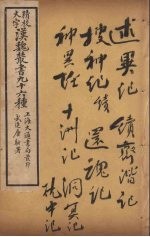 述異記 續齊諧記
搜神記 續 還魂記
神異經 十洲記 洞冥記
枕中記
精校
大字
漢魏叢書九十六種
上海大通書局石印
武進唐駝署